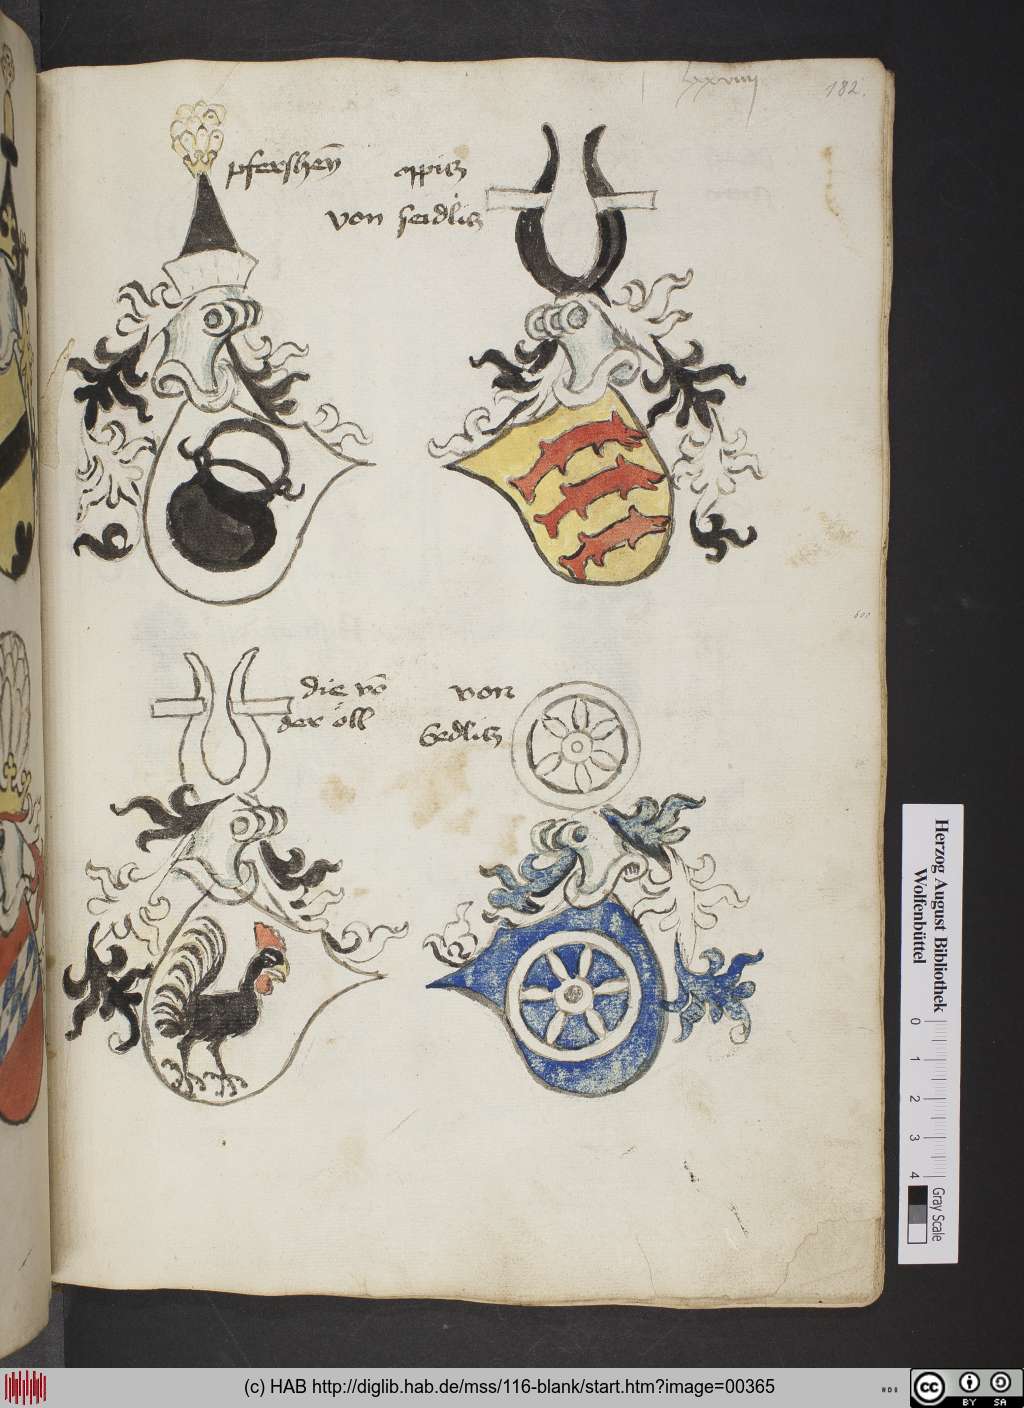 lxxviiij
182.
pfersheȳ
oppitz
von seidlitz
600
die vō
der öll
von
Sedlitz
Herzog August Bibliothek
Wolfenbüttel
0 1 2 3 4
Gray Scale
(c) HAB http://diglib.hab.de/mss/116-blank/start.htm?image=00365
HDB
cc
BY SA